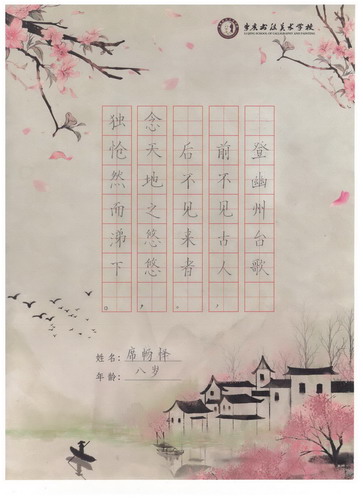 重庆书法美术学校
SCHOOL OF CALLIGRAPHY AND PAINTING
登幽州台歌
前不见古人，
后不见来者。
念天地之悠悠，
独怆然而涕下。
姓名：席畅
年龄：八岁